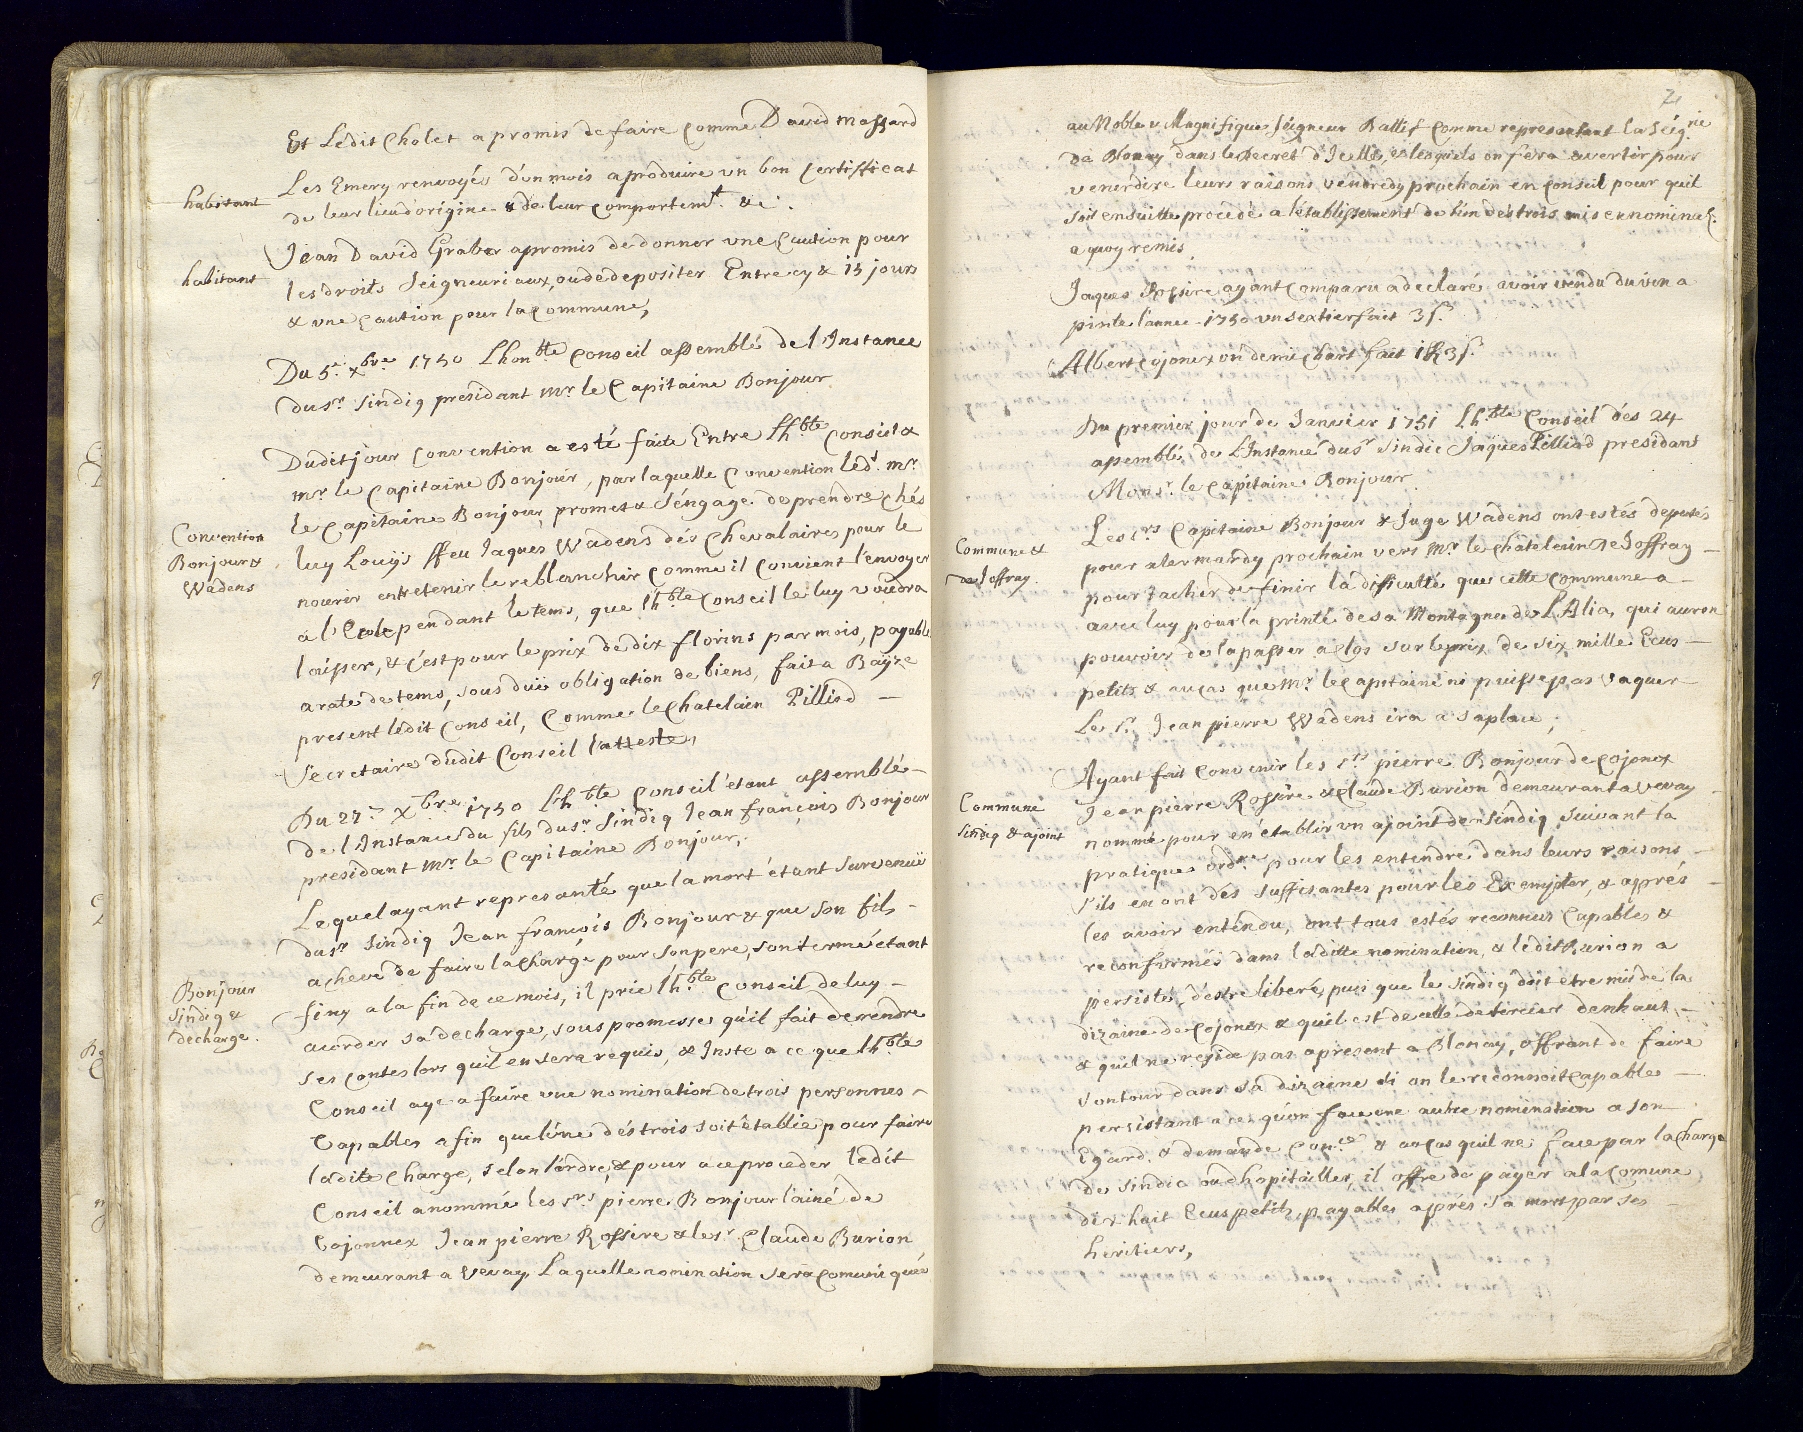 Et Ledit Cholet a promis de faire comme David massard
habitant
Les Emery renvoyés d'un mois a produire un bon Certifficat
de leur lieu d'origine & de leur comportemt. &c.
habitant
Jean David Graber a promis de donner une Caution pour
les droits Seigneuriaux, ou de depositer Entre cy & 15 jours
& une Caution pour la Commune,
Du 5e. xbre. 1750 Lhonble Conseil assemblé de l'Instance
du sr. Sindiq presidant Mr le Capitaine Bonjour
Convention
Bonjour &
Wadens
Dudit jour Convention a esté faite Entre Lhble Conseil &
mr. le Capitaine Bonjour, par laquelle Convention led. mr
le Capitaine Bonjour promet & s'engage de prendre chés
luy Louijs ffeu Jaques Wadens dés Chevalaires pour le
nourir entretenir le reblanchir comme il convient l'envoyer
a l'Ecole pendant le tems, que lhble Conseil le luy voudra
laisser, & c'est pour le prix de dix florins par mois, payable
a rate de tems, sous düe obligation de biens, fait a Baÿse
present ledit Conseil, Comme le Chatelain Pilliod
Secretaire dudit Conseil l'atteste,
Du 27e. Xbre. 1750 Lhble Conseil étant assemblé
de l'Instance du fils du sr. Sindiq Jean françois Bonjour
presidant Mr. le Capitaine Bonjour,
Bonjour
Sindiq &
decharge.
Lequel ayant representé que la mort étant survenüe
du sr Sindiq Jean françois Bonjour & que son fils
achevé de faire la Charge pour son pere, son terme étant
finy a la fin de ce mois, il prie lhble Conseil de luy
acorder sa decharge, sous promesse qu'il fait de rendre
ses contes lors quil en sera requis, & Inste a ce que lhble
Conseil aye a faire une nomination de trois personnes
Capables afin que l'une dés trois soit établie pour faire
ladite Charge, selon l'ordre, & pour a ce proceder ledit
Conseil a nommé les srs pierre Bonjour l'ainé de
Cojonnex Jean pierre Rossire & le sr. Claude Burion
demeurant a Vevay, Laquelle nomination sera Comuniquée
au Noble & Magnifique Seigneur Ballif Comme representant la Seigrie
de Blonay dans le Decret d'Jcelle, & lesquels on fera avertir pour
venir dire leurs raisons vendredy prochain en Conseil pour quil
soit ensuitte procédé a l'établissement de l'un dés trois mis en nominat.
a quoy remis.
Jaques Rossire ayant Comparu a declaré avoir vendu du vin a
pinte l'annee 1750 un sextier fait 3 s.
Albert Cojonex un demi Chart fait 1 ff 3 s.
Du premier jour de Janvier 1751 Lhble Conseil dés 24
assemblé de l'Instance du sr Sindic Jaques Pilliod presidant
Monsr. le Capitaine Bonjour.
Commune &
de Joffray.
Les srs Capitaine Bonjour & Juge Wadens ont estés deputés
pour aler mardy prochain vers Mr. le Châtelain de Joffray
pour tacher de finir la difficulté que cette Commune a
avec luy pour la printé de sa Montagne de L'Alia, qui auront
pouvoir de la passer a clos sur le prix de six mille Ecus
petits & au cas que Mr. le Capitaine ni puisse pas vaquer
Le sr. Jean pierre Wadens ira a sa place,
Commune
Sindiq & ajoint
Ayant fait convenir les srs pierre Bonjour de Cojonex
Jean pierre Rossire & Claude Burion demeurant a Vevay
nommé pour en établir un ajoint de Sindiq suivant la
pratique ordre pour les entendre dans leurs raisons
s'ils en ont dés suffisantes pour les Exempter, & aprés
les avoir entendu, ont tous estés reconnus Capables &
reconfirmés dans laditte nomination, & ledit Burion a
persisté d'estre liberé, puis que le Sindiq doit etre mis de la
dizaine de Cojonex & quil est de celle de tercier denhaut,
& quil ne reside pas apresent a Blonay, offrant de faire
son tour dans sa dizaine si on le reconnoit Capable
persistant a ce qu'on face une autre nomination a son
Egard. & demande Conce & au cas quil ne face pas la charge
de Sindic ou d'hopitaillier, il offre de payer a la Comune
dix huit Ecus petits, payables aprés sa mort par ses
heritiers,